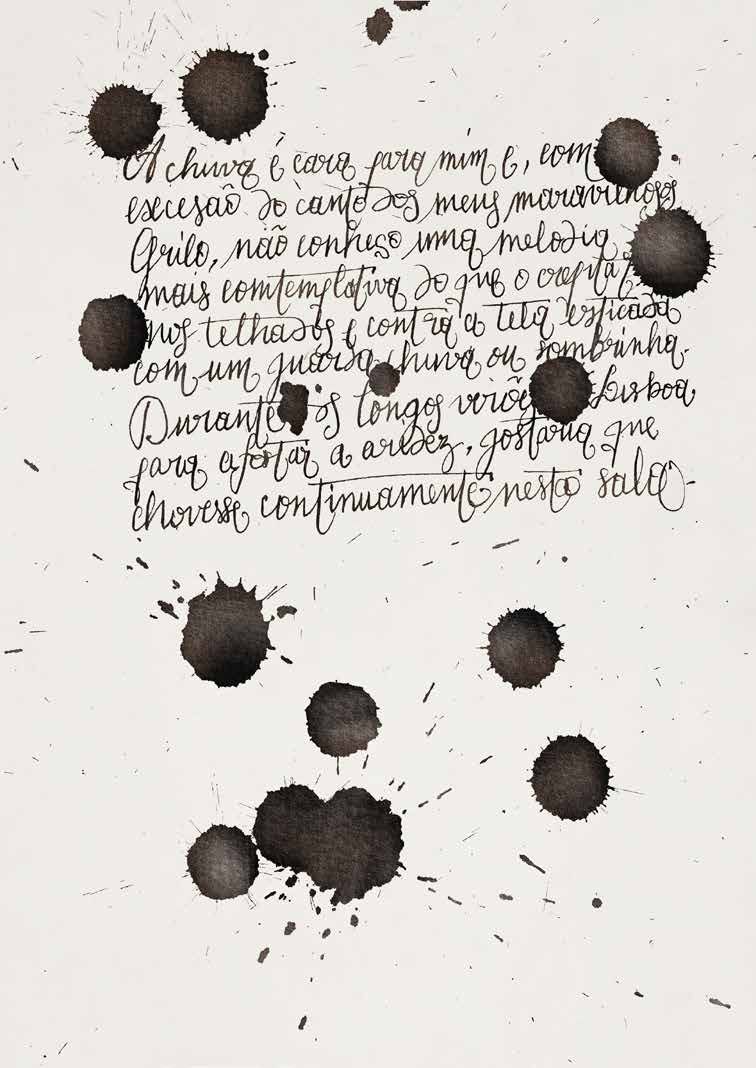 A chuva é cara para mim e, com
exceção do canto dos meus maravilhosos
Grilo, não conheço uma melodia
mais comtemplativa do que o crepitar
nos telhados e contra a tela esticada
com um guarda chuva ou sombrinha.
Durante os longos verões Lisboa
para afastar a aridez, gostaria que
chovesse continuamente nesta sala.